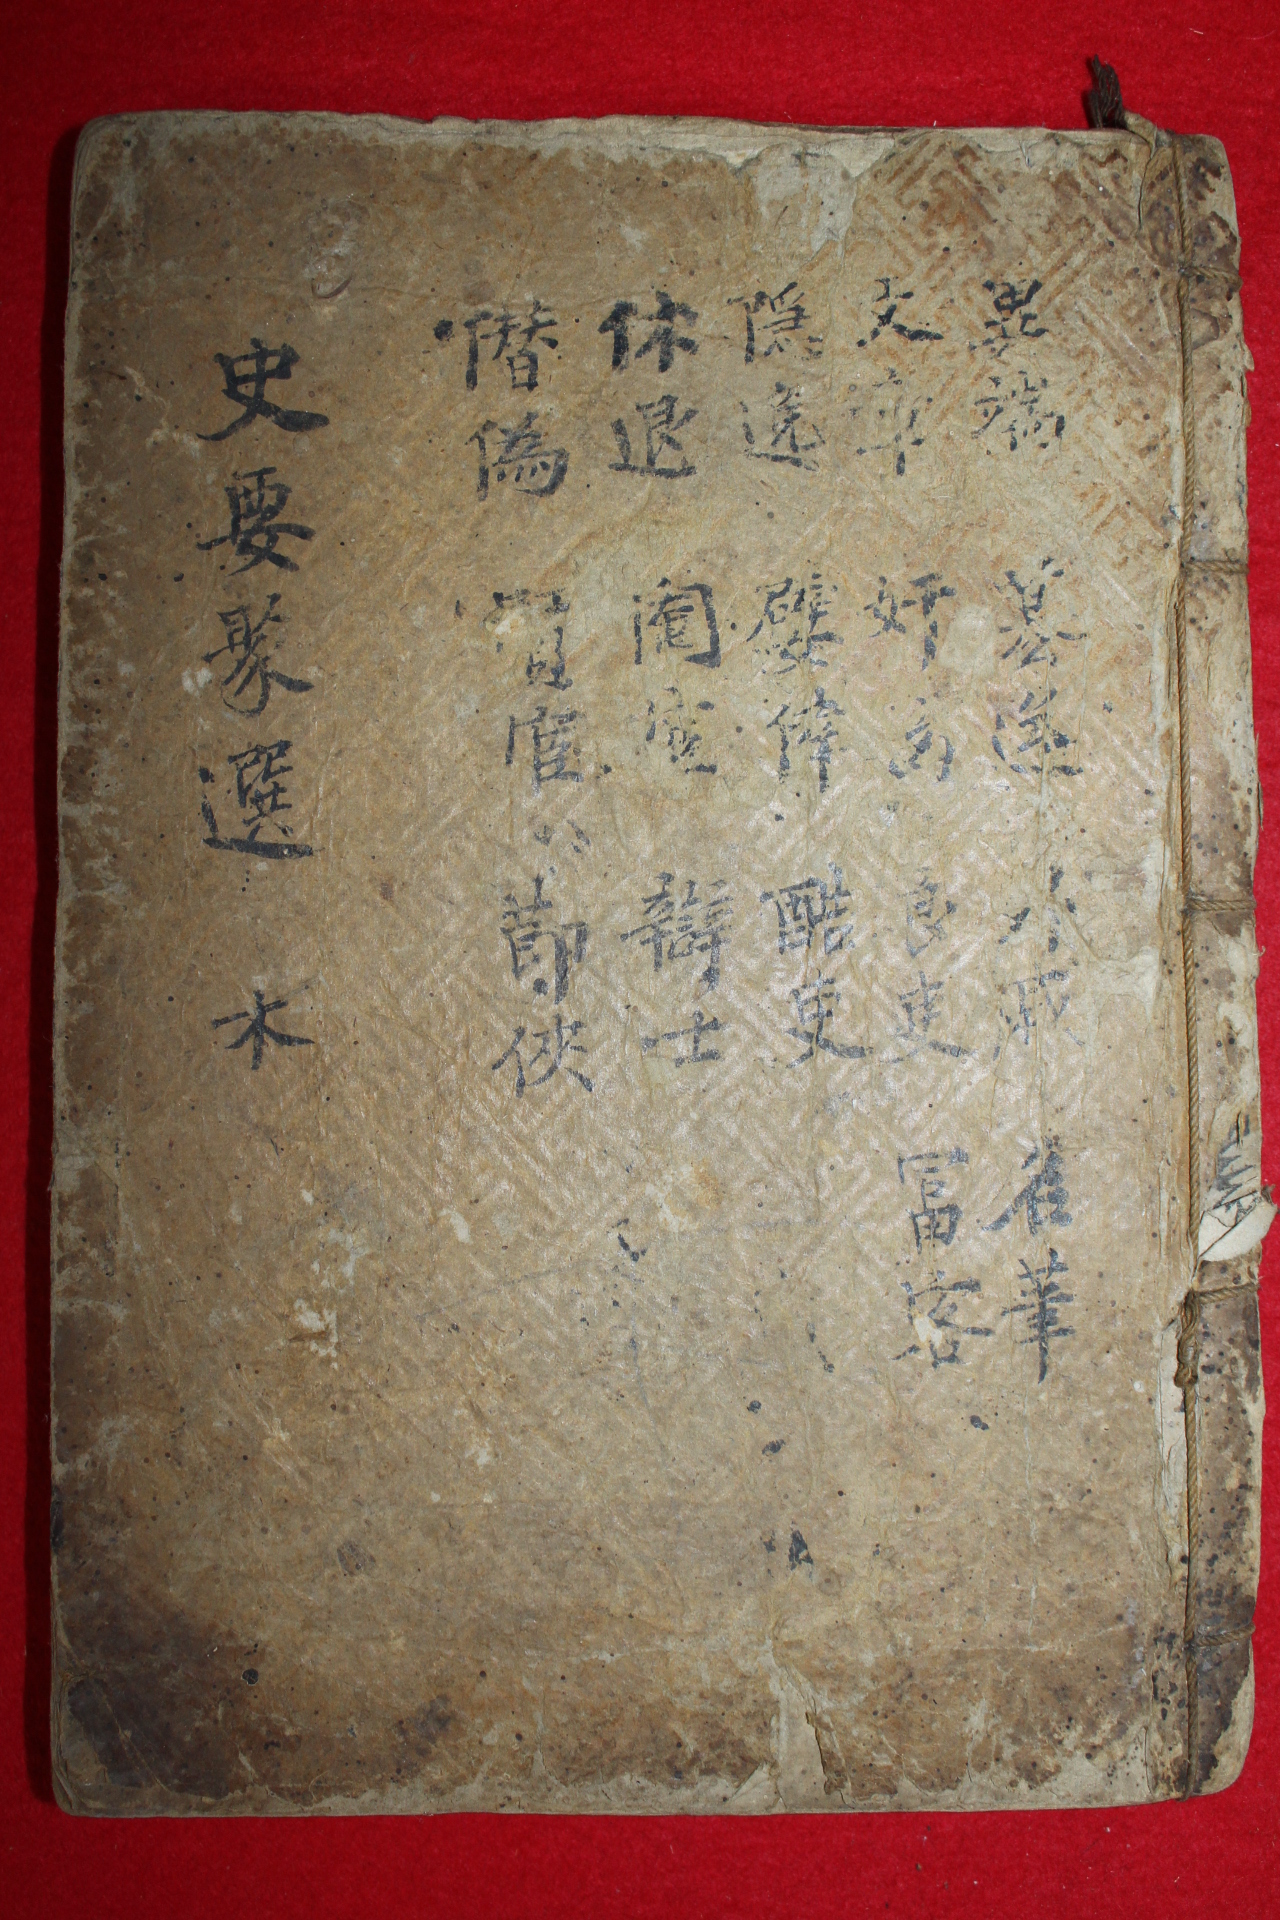 異端 墓逆 外戚 崔華
文章 奸 良吏 富客
隠逸 嬖倖 酷吏
休退 閹宦 辯士
僭偽 宦 節俠
史要聚選 木